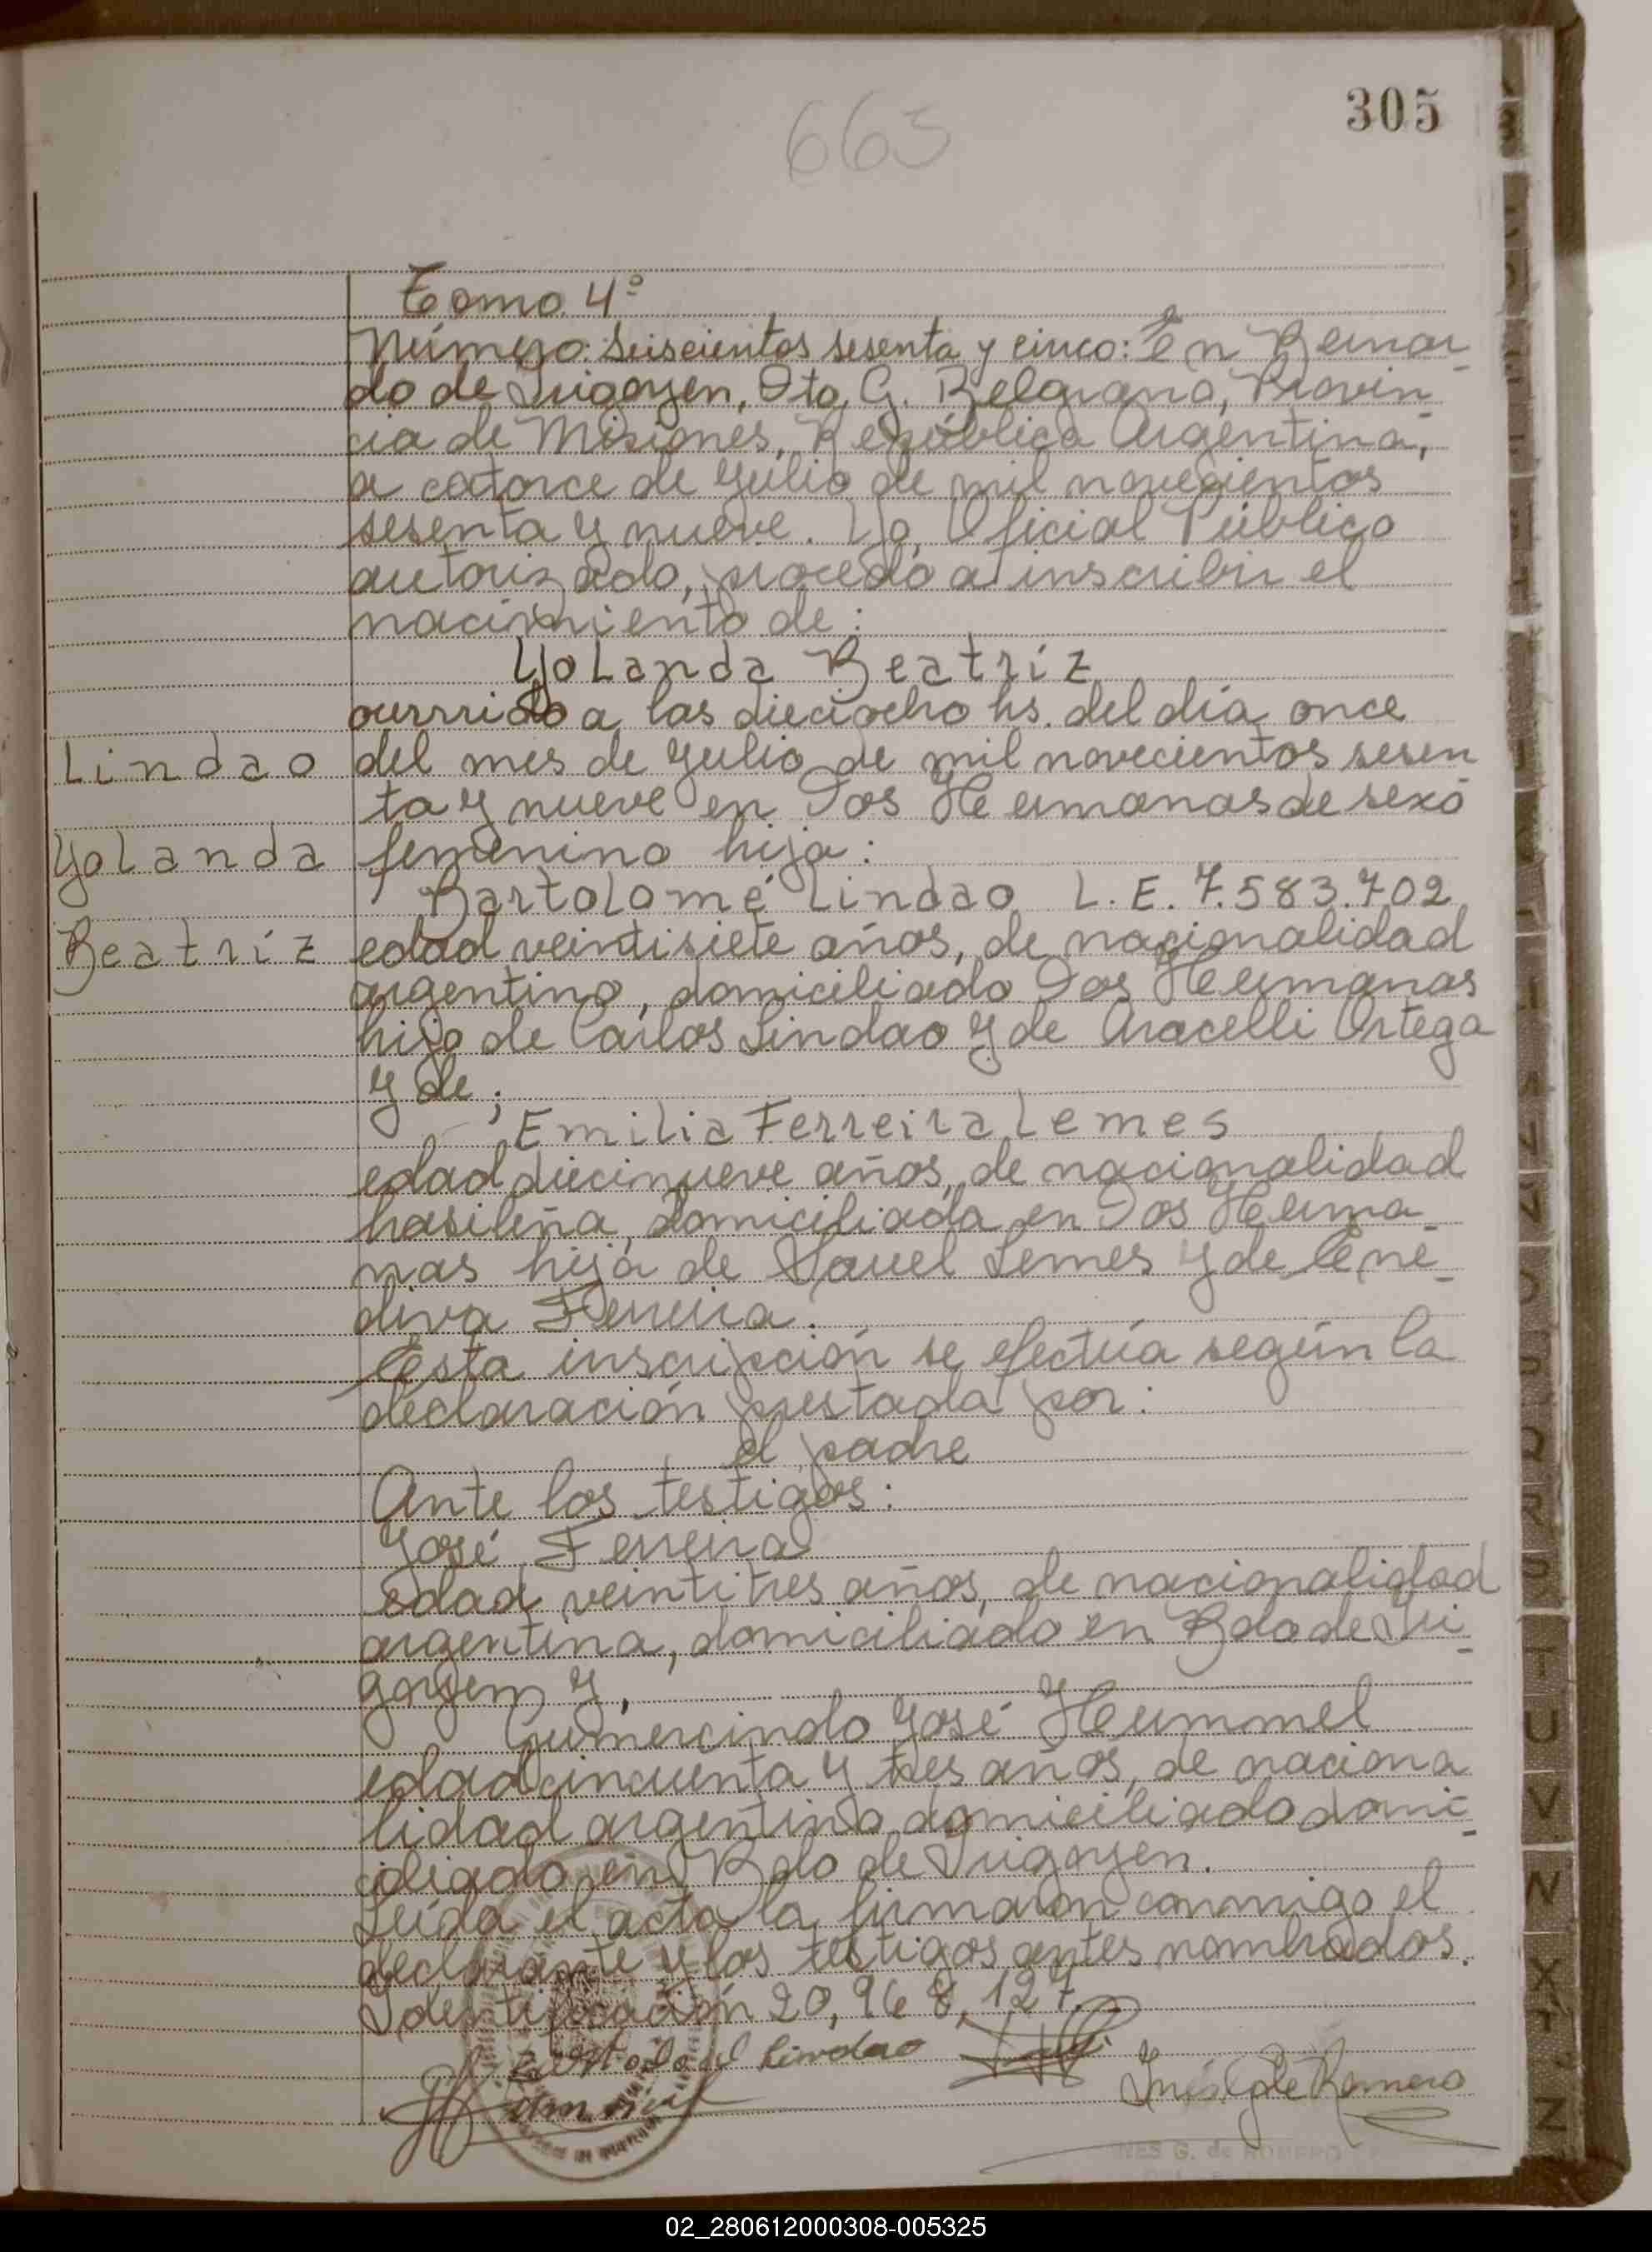 305
665
Tomo 4º
Número: Seiscientos sesenta y cinco: En Bernar-
do de Irigoyen, Dto. G. Belgrano, Provin-
cia de Misiones, República Argentina,
a catorce de Julio de mil novecientos
sesenta y nueve. Yo, Oficial Público
autorizado, procedo a inscribir el
nacimiento de:
Yolanda Beatriz
ourrrido a las dieciocho hs. del día once
Lindao
del mes de Julio de mil novecientos sesen-
ta y nueve en Dos Hermanas de sexo
Yolanda
femenino hija:
Bartolomé Lindao L.E. 7.583.702
Beatriz
edad veintisiete años, de nacionalidad
argentino, domiciliado Dos Hermanas
hijo de Carlos Lindao y de Aracelli Ortega
y de;
Emilia Ferreira Lemes
edad diecinueve años, de nacionalidad
brasileña, domiciliada en Dos Herma-
nas hija de Lemes y de
Ferreira.
Esta inscripción se efectúa según la
declaración prestada por:
el padre
Ante los testigos:
José Ferreira
edad veintitres años, de nacionalidad
argentina, domiciliado en Bdo de Iri-
goyen y,
Gumercindo José Hummel
edad cincuenta y tres años, de naciona
lidad argentino domiciliado domi-
ciliado en Bdo de Irigoyen.
Leída el acta la firmaron conmigo el
declarante y los testigos antes nombrados.
Identificación 20,968,127.
Lindao
Inés G de Romero
INES G. de ROMERO
02_280612000308-005325